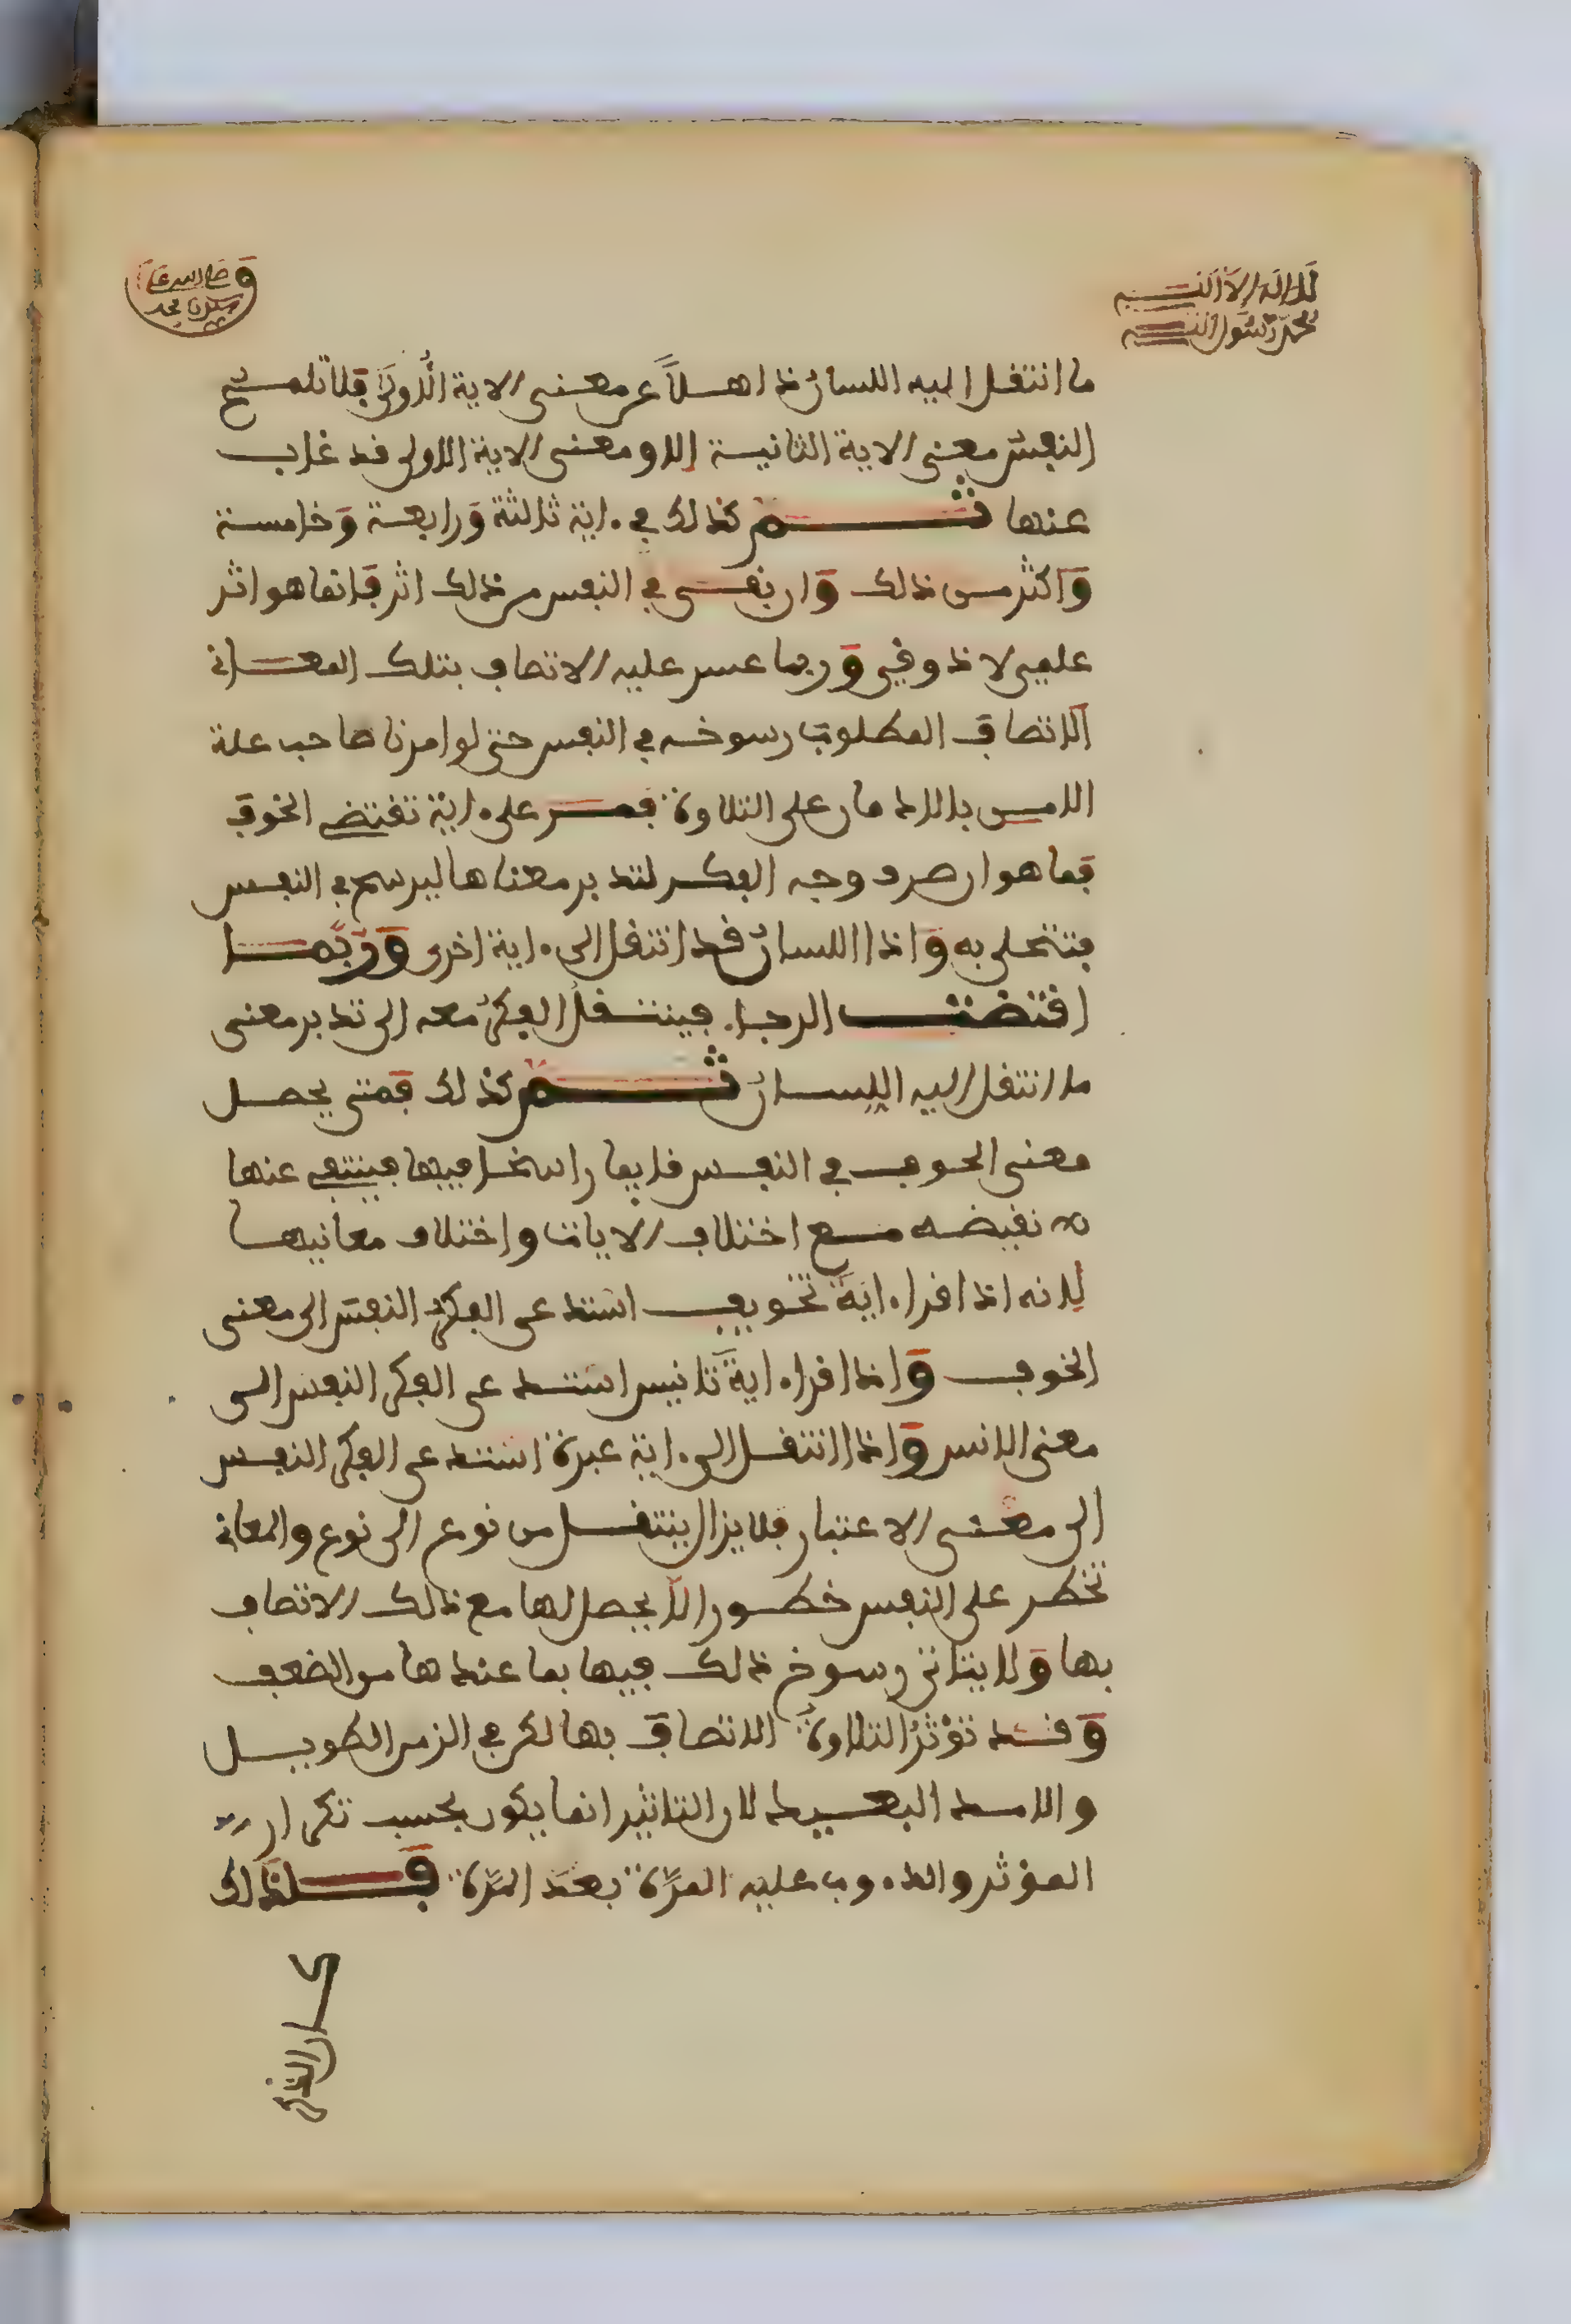 لا اله الا الله
محمد رسول الله
صلى الله على
سيدنا محمد
ما انتقل اليه اللسان ذاهلًا عن معنى الاية الأولى فلا تلمح
النفس معنى الاية الثانية الا ومعنى الاية الاولى قد غاب
عنها ثم كذلك في ءاية ثالثة ورابعة وخامسة
واكثر من ذلك وان بقى في النفس من ذلك اثر فانما هو اثر
علمي لا ذوقي وربما عسر عليه الاتصاف بتلك المعاني
الاتصاف المطلوب رسوخه في النفس حتى لو امرنا صاحب علة
الامن بالادمان على التلاوة فمر على ءاية تقتضي الخوف
فما هو ان صرف وجه الفكر لتدبر معناها ليرسم في النفس
فتتحلى به واذا اللسان قد انتقل الى ءاية اخرى وربما
اقتضت الرجاء فينتقل الفكر معه الى تدبر معنى
ما انتقل اليه اللسان ثم كذلك فمتى يحصل
معنى الخوف في النفس قايما راسخا فيها فينتفي عنها
نقيضه مع اختلاف الايات واختلاف معانيها
لانه اذا قرا ءاية تخويف استدعى الفكر النفس الى معنى
الخوف واذا قرا ءاية تانيس استدعى الفكر النفس الى
معنى الانس واذا انتقل الى ءاية عبرة استدعى الفكر النفس
الى معنى الاعتبار فلا يزال ينتقل من نوع الى نوع والمعاني
تخطر على النفس خطورا لا يحصل لها مع ذلك الاتصاف
بها ولا يتاتى رسوخ ذلك فيها بما عندها من الضعف
وقد تؤثر التلاوة الاتصاف بها لكن في الزمن الطويل
والامد البعيد لان التاثير انما يكون بحسب تكرار
المؤثر والدءوب عليه المرة بعد المرة فلذلك
كان الذكر